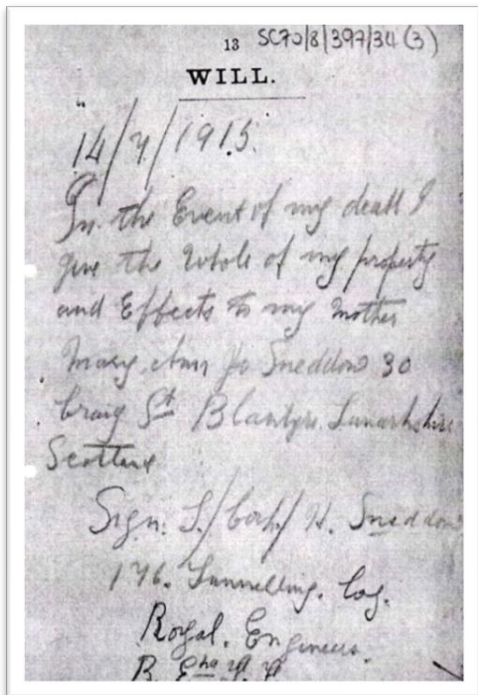 13 SC70/8/397/34 (3)
WILL.
14/7/1915.
In the Event of my death I
give the Whole of my property
and Effects to my Mother
Mary Ann Sneddon 30
Craig St Blantyre. Lanarkshire
Scotland
Sign. L./Corp./ H. Sneddon
176. Tunnelling. Coy.
Royal. Engineers.